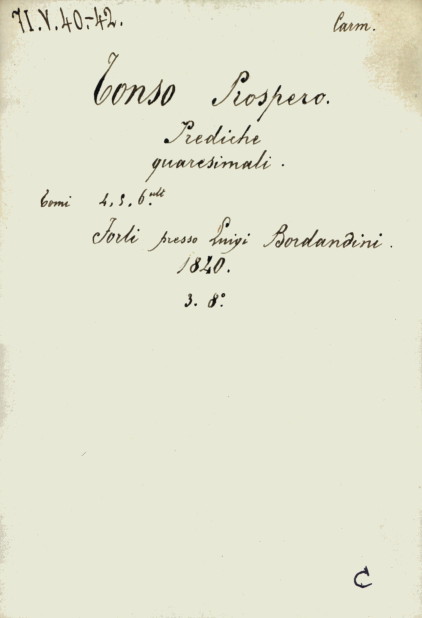 71.V.40-42.
Carm.
Tonso Prospero.
Prediche
quaresimali.
Tomi 4, 5, 6.ult
Forlì presso Luigi Bordandini.
1840.
3. 8°
C